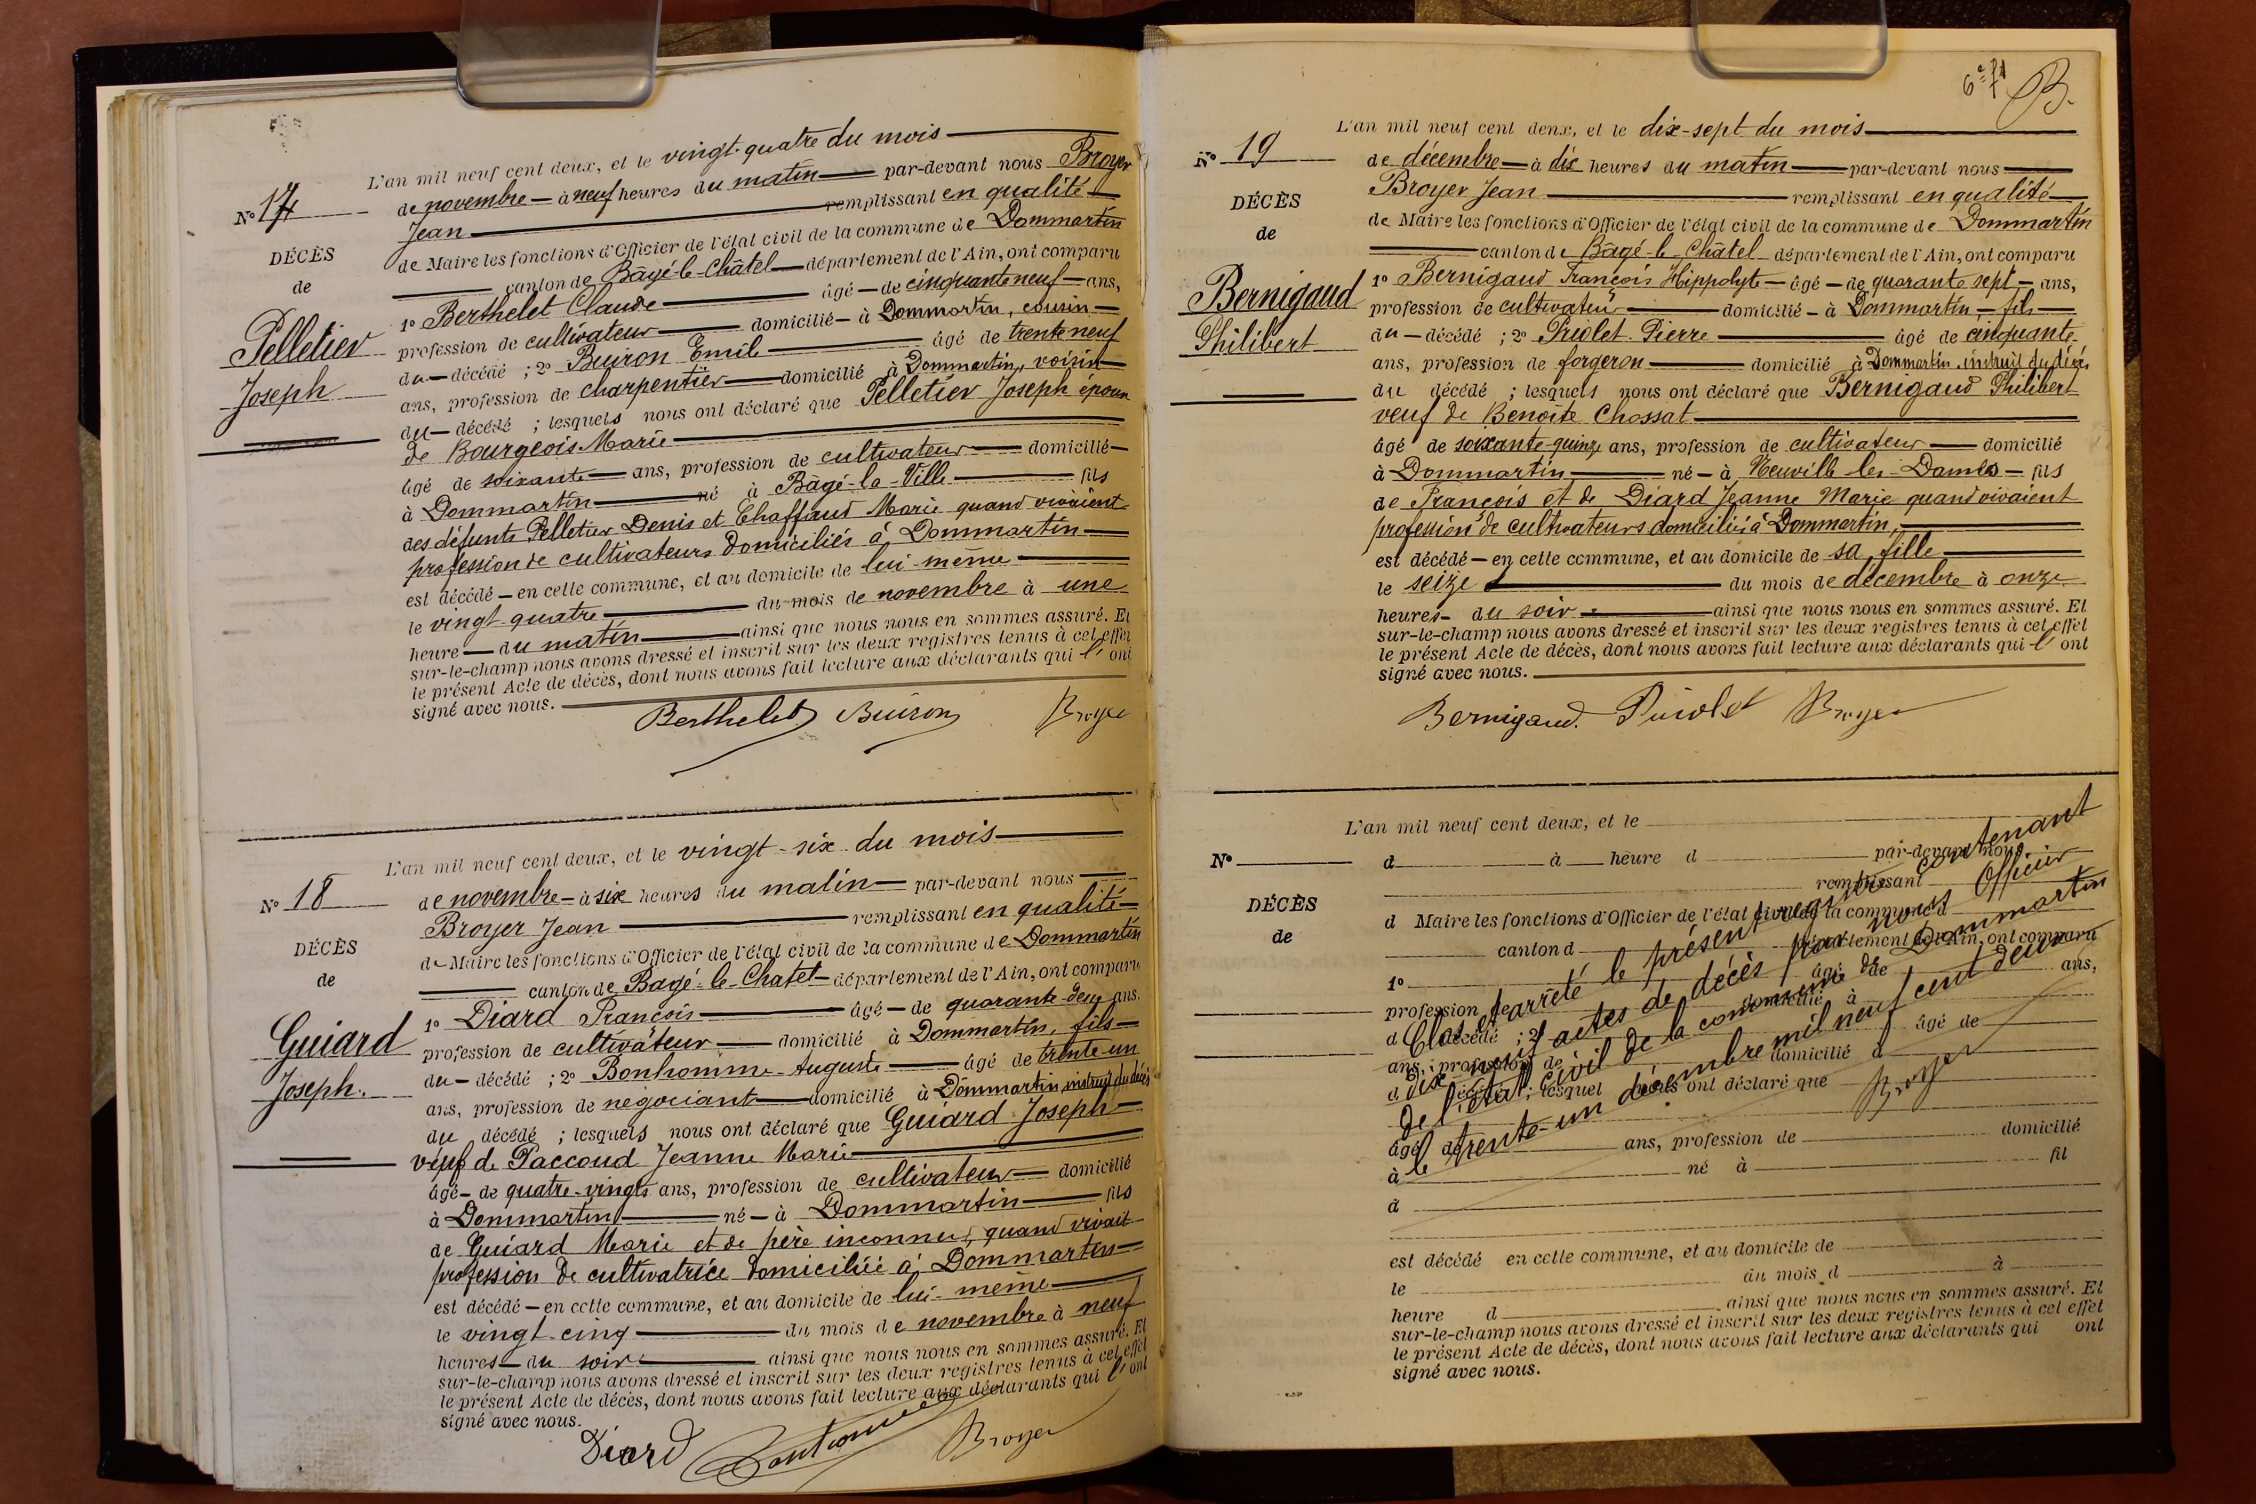 L'an mil neuf cent deux, et le vingt-quatre du mois
No 17
de novembre à neuf heures du matin par-devant nous Broyer
Jean remplissant en qualité
DÉCÈS
de Maire les fonctions d'Officier de l'état civil de la commune de Dommartin
de
canton de Bâgé-le-Châtel département de l'Ain, ont comparu
1o Berthelet Claude âgé de cinquante neuf ans,
Pelletier
profession de cultivateur domicilié à Dommartin, cousin
du décédé ; 2o Buiron Emile âgé de trente neuf
Joseph
ans, profession de charpentier domicilié à Dommartin, voisin
du décédé ; lesquels nous ont déclaré que Pelletier Joseph époux
de Bourgeois Marie
âgé de soixante ans, profession de cultivateur domicilié
à Dommartin né à Bâgé-la-Ville fils
des défunts Pelletier Denis et Chaffaud Marie quand vivaient
profession de cultivateurs domiciliés à Dommartin
est décédé en cette commune, et au domicile de lui-même
le vingt quatre du mois de novembre à une
heure du matin ainsi que nous nous en sommes assuré. Et
sur-le-champ nous avons dressé et inscrit sur les deux registres tenus à cet effet
le présent Acte de décès, dont nous avons fait lecture aux déclarants qui l'ont
signé avec nous.
Berthelet Buiron Broyer
L'an mil neuf cent deux, et le vingt-six du mois
No 18
de novembre à six heures du matin par-devant nous
Broyer Jean remplissant en qualité
DÉCÈS
de Maire les fonctions d'Officier de l'état civil de la commune de Dommartin
de
canton de Bagé-le-Chatel département de l'Ain, ont comparu
1o Diard François âgé de quarante-deux ans.
Guiard
profession de cultivateur domicilié à Dommartin, fils
du décédé ; 2o Bonhomme Auguste âgé de trente-un
Joseph.
ans, profession de négociant domicilié à Dommartin, instruit du décès
du décédé ; lesquels nous ont déclaré que Guiard Joseph
veuf de Paccoud Jeanne Marie
âgé de quatre-vingts ans, profession de cultivateur domicilié
à Dommartin né à Dommartin fils
de Guiard Marie et de père inconnu, quand vivait
profession de cultivatrice domiciliée à Dommartin
est décédé en cette commune, et au domicile de lui-même
le vingt-cinq du mois de novembre à neuf
heures du soir ainsi que nous nous en sommes assuré. Et
sur-le-champ nous avons dressé et inscrit sur les deux registres tenus à cet effet
le présent Acte de décès, dont nous avons fait lecture aux déclarants qui l'ont
signé avec nous.
Diard Bonhomme Broyer
6e ft B.
L'an mil neuf cent deux, et le dix-sept du mois
No 19
de décembre à dix heures du matin par-devant nous
Broyer Jean remplissant en qualité
DÉCÈS
de Maire les fonctions d'Officier de l'état civil de la commune de Dommartin
de
canton de Bâgé-le-Châtel département de l'Ain, ont comparu
1o Bernigaud François Hippolyte âgé de quarante sept ans,
Bernigaud
profession de cultivateur domicilié à Dommartin fils
du décédé ; 2o Puiolet Pierre âgé de cinquante
Philibert
ans, profession de forgeron domicilié à Dommartin instruit du décès
du décédé ; lesquels nous ont déclaré que Bernigaud Philibert
veuf de Benoite Chossat
âgé de soixante-quinze ans, profession de cultivateur domicilié
à Dommartin né à Neuville les Dames fils
de François et de Diard Jeanne Marie quand vivaient
profession de cultivateurs domiciliés à Dommartin,
est décédé en cette commune, et au domicile de sa fille
le seize du mois de décembre à onze
heures du soir ainsi que nous nous en sommes assuré. Et
sur-le-champ nous avons dressé et inscrit sur les deux registres tenus à cet effet
le présent Acte de décès, dont nous avons fait lecture aux déclarants qui l'ont
signé avec nous.
Bernigaud. Puiolet Broyer
L'an mil neuf cent deux, et le
No
d à heure d par-devant nous
remplissant
DÉCÈS
d Maire les fonctions d'Officier de l'état civil de la commune d
de
canton d département de l'Ain, ont comparu
1o âgé de ans,
profession de domicilié à
d décédé ; 2o âgé de
ans, profession de domicilié à
d décédé ; lesquel nous ont déclaré que
âgé de ans, profession de domicilié
à né à fil
d
est décédé en cette commune, et au domicile de
le du mois d à
heure d ainsi que nous nous en sommes assuré. Et
sur-le-champ nous avons dressé et inscrit sur les deux registres tenus à cet effet
le présent Acte de décès, dont nous avons fait lecture aux déclarants qui ont
signé avec nous.
Clos et arrêté le présent registre contenant
dix neuf actes de décès par nous Officier
de l'état civil de la commune de Dommartin
le trente-un décembre mil neuf cent deux
Broyer